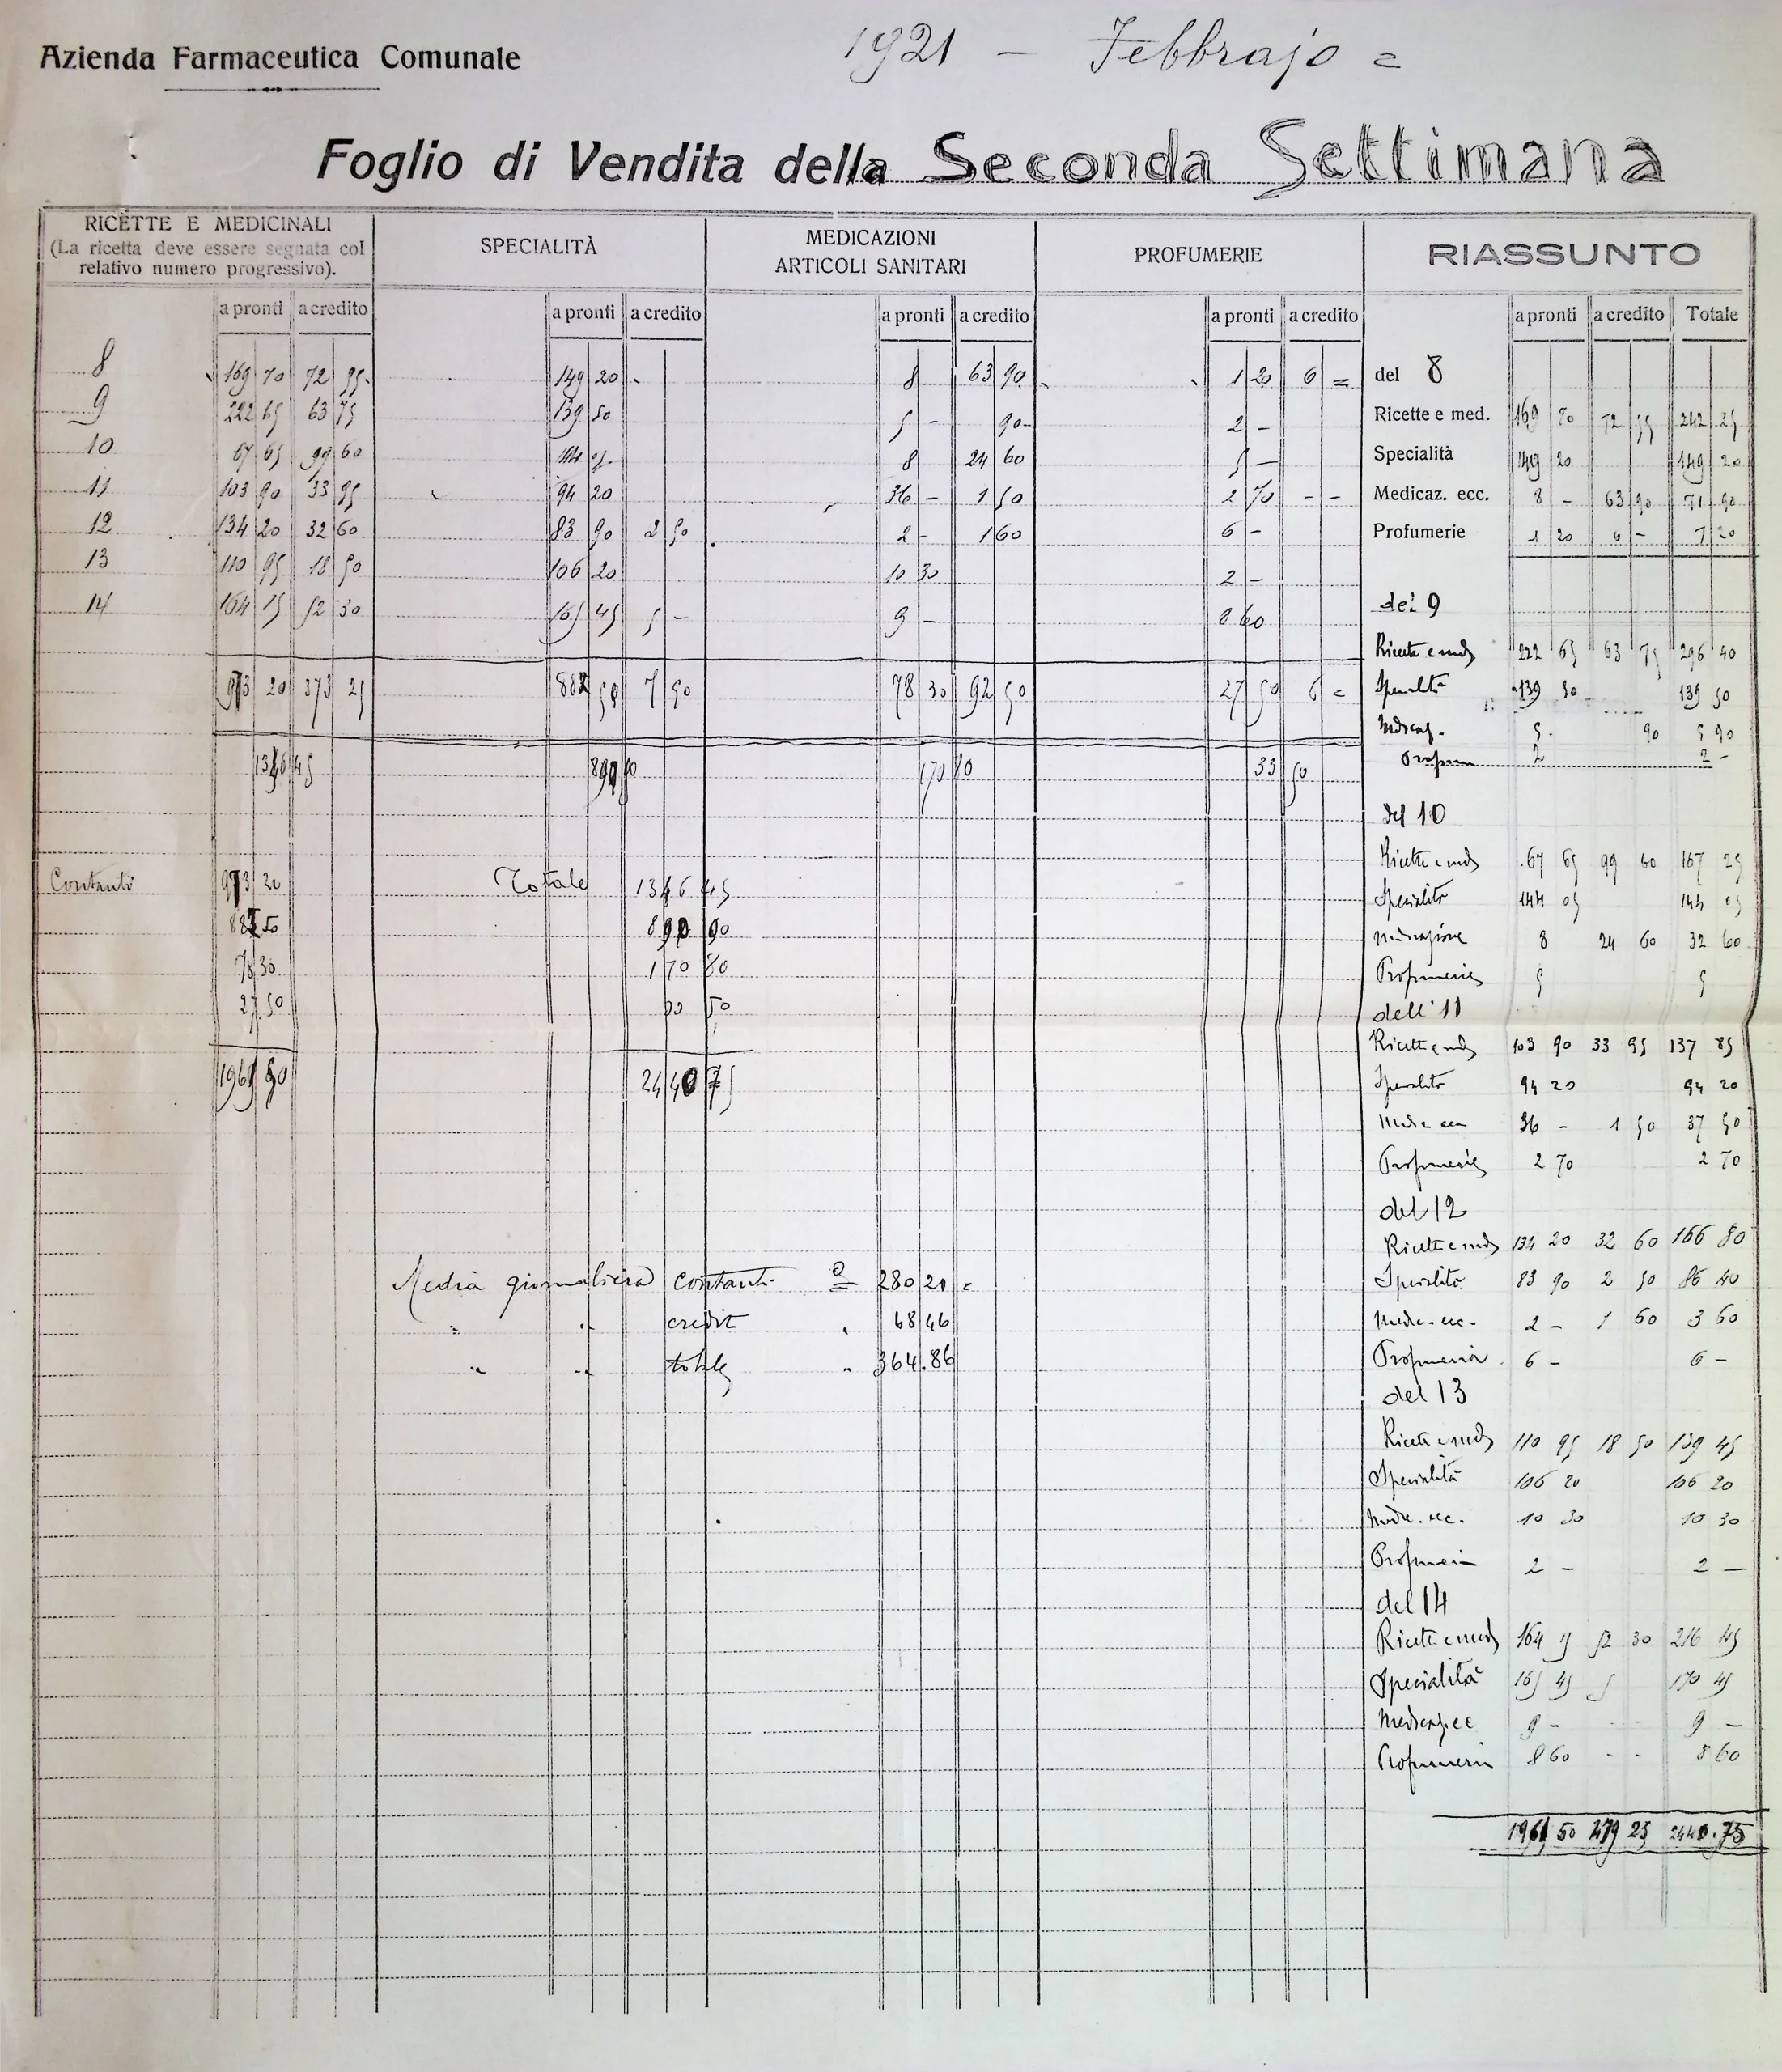 Azienda Farmaceutica Comunale
1921 - Febbrajo =
Foglio di Vendita della Seconda Settimana
RICETTE E MEDICINALI
(La ricetta deve essere segnata col
relativo numero progressivo).
SPECIALITÀ
MEDICAZIONI
ARTICOLI SANITARI
PROFUMERIE
RIASSUNTO
a pronti a credito a pronti a credito a pronti a credito a pronti a credito a pronti a credito Totale
8 169 70 72 55 149 20 8 63 90 1 20 6 =
9 222 65 63 75 139 50 5 - 90 - 2 -
10 67 65 99 60 144 05 8 24 60 5 -
11 103 90 33 95 94 20 36 - 1 50 2 70 - -
12 134 20 32 60 83 90 2 50 2 - 1 60 6 -
13 110 95 18 50 106 20 10 30 2 -
14 164 15 52 30 165 45 5 - 9 - 8 60
973 20 373 25 882 50 7 50 78 30 92 50 27 50 6 =
1346 45 170 80 33 50
Contanti 973 20
78 30
27 50
Totale 1346 45
890 90
170 80
33 50
2440 75
Media giornaliera contanti 280 21 =
" " credit 68 46
" " totale 364.86
del 8
Ricette e med. 169 70 72 55 242 25
Specialità 149 20 149 20
Medicaz. ecc. 8 - 63 90 71 90
Profumerie 1 20 6 - 7 20
del 9
Ricette e med 222 65 63 75 296 40
Specialità 139 50 139 50
Medicaz. 5 - 90 5 90
Profum 2 2 -
del 10
Ricette e med 67 65 99 60 167 25
Specialità 144 05 144 05
Medicazione 8 24 60 32 60
Profumerie 5 5
dell' 11
Ricette e med 103 90 33 95 137 85
Specialità 94 20 94 20
Medic ecc 36 - 1 50 37 50
Profumerie 2 70 2 70
del 12
Ricette e med 134 20 32 60 166 80
Specialità 83 90 2 50 86 40
Medic. ecc. 2 - 1 60 3 60
Profumeria 6 - 6 -
del 13
Ricette e med 110 95 18 50 129 45
Specialità 106 20 106 20
Medic. ecc. 10 30 10 30
Profumeria 2 - 2 -
del 14
Ricette e med 164 15 52 30 216 45
Specialità 165 45 5 170 45
Medicaz. ec 9 - - - 9 -
Profumeria 8 60 - - 8 60
1961 50 479 25 2440.75